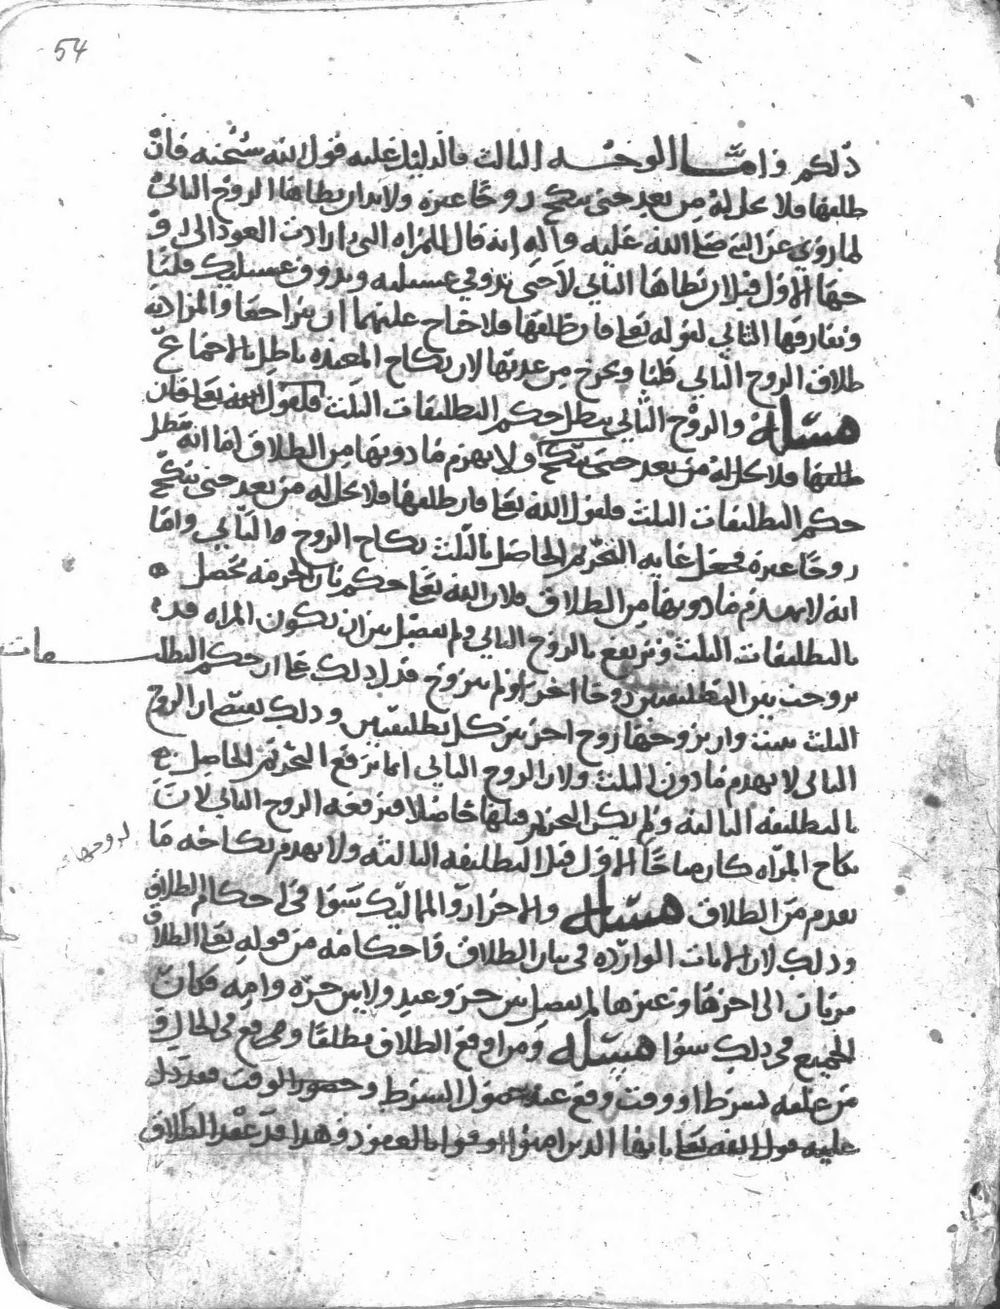 54
ذلكم وأما الوجه الثالث فالدليل عليه قول الله سبحنه فان
طلقها فلا تحل له من بعد حتى تنكح زوجا غيره ولا بد ان يطاها الزوج الثاني
لما روي عن النبي صلى الله عليه واله انه قال للمراه التي ارادت العود الى
زوجها الاول قبل ان يطاها الثاني لا حتى تذوقي عسيلته ويذوق عسيلتك قلنا
ويفارقها الثاني لقوله تعا فان طلقها فلا جناح عليهما ان يتراجعا والمراد به
طلاق الزوج الثاني قلنا وتخرج من عدتها لان نكاح المعتده باطل بالاجماع
مسئله والزوج الثاني يبطل حكم التطليقات الثلث فلقول الله تعا فان
طلقها فلا تحل له من بعد حتى تنكح ولا يهدم ما دونها من الطلاق اما انه يبطل
حكم التطليقات الثلث فلقول الله تعا فان طلقها فلا تحل له من بعد حتى تنكح
زوجا غيره فجعل غايه التحريم الحاصل بالثلث نكاح الزوج الثاني واما
انه لا يهدم ما دونها من الطلاق فلان الله تعا حكم بان الحرمه تحصل
بالتطليقات الثلث وترتفع بالزوج الثاني ولم يفصل بين ان تكون المراه قد
تزوجت بين التطليقتين زوجا اخر او لم تتزوج فدل ذلك على ان حكم التطليقات
الثلث يثبت وان تزوجها زوج اخر بين كل تطليقتين وذلك يقتضي ان الزوج
الثاني لا يهدم ما دون الثلث ولان الزوج الثاني انما يرفع التحريم الحاصل
بالتطليقه الثالثه ولم يكن التحريم قبلها حاصلا فيرفعه الزوج الثاني لان
نكاح المراه كان مباحا للاول قبل التطليقه الثالثه ولا يهدم نكاحه ما
لزوجها
تقدم من الطلاق مسئله والاحرار والمماليك سوا في احكام الطلاق
وذلك لان الايات الوارده في بيان الطلاق واحكامه من قوله تعا الطلاق
مرتان الى اخرها وغيرها لم يفصل بين حر وعبد ولا بين حره وامه فكان
الجميع في ذلك سوا مسئله ومن اوقع الطلاق مطلقا وقع في الحال
من علقه بشرط او وقت وقع عند حصول الشرط وحضور الوقت
عليه قول الله تعا يا ايها الذين امنوا اوفوا بالعقود وهذا قد عقد الطلاق